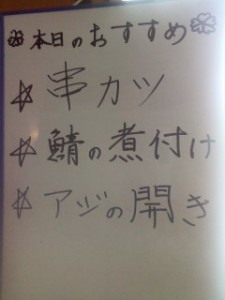 本日のおすすめ
☆ 串カツ
☆ 鯖の煮付け
☆ アジの開き